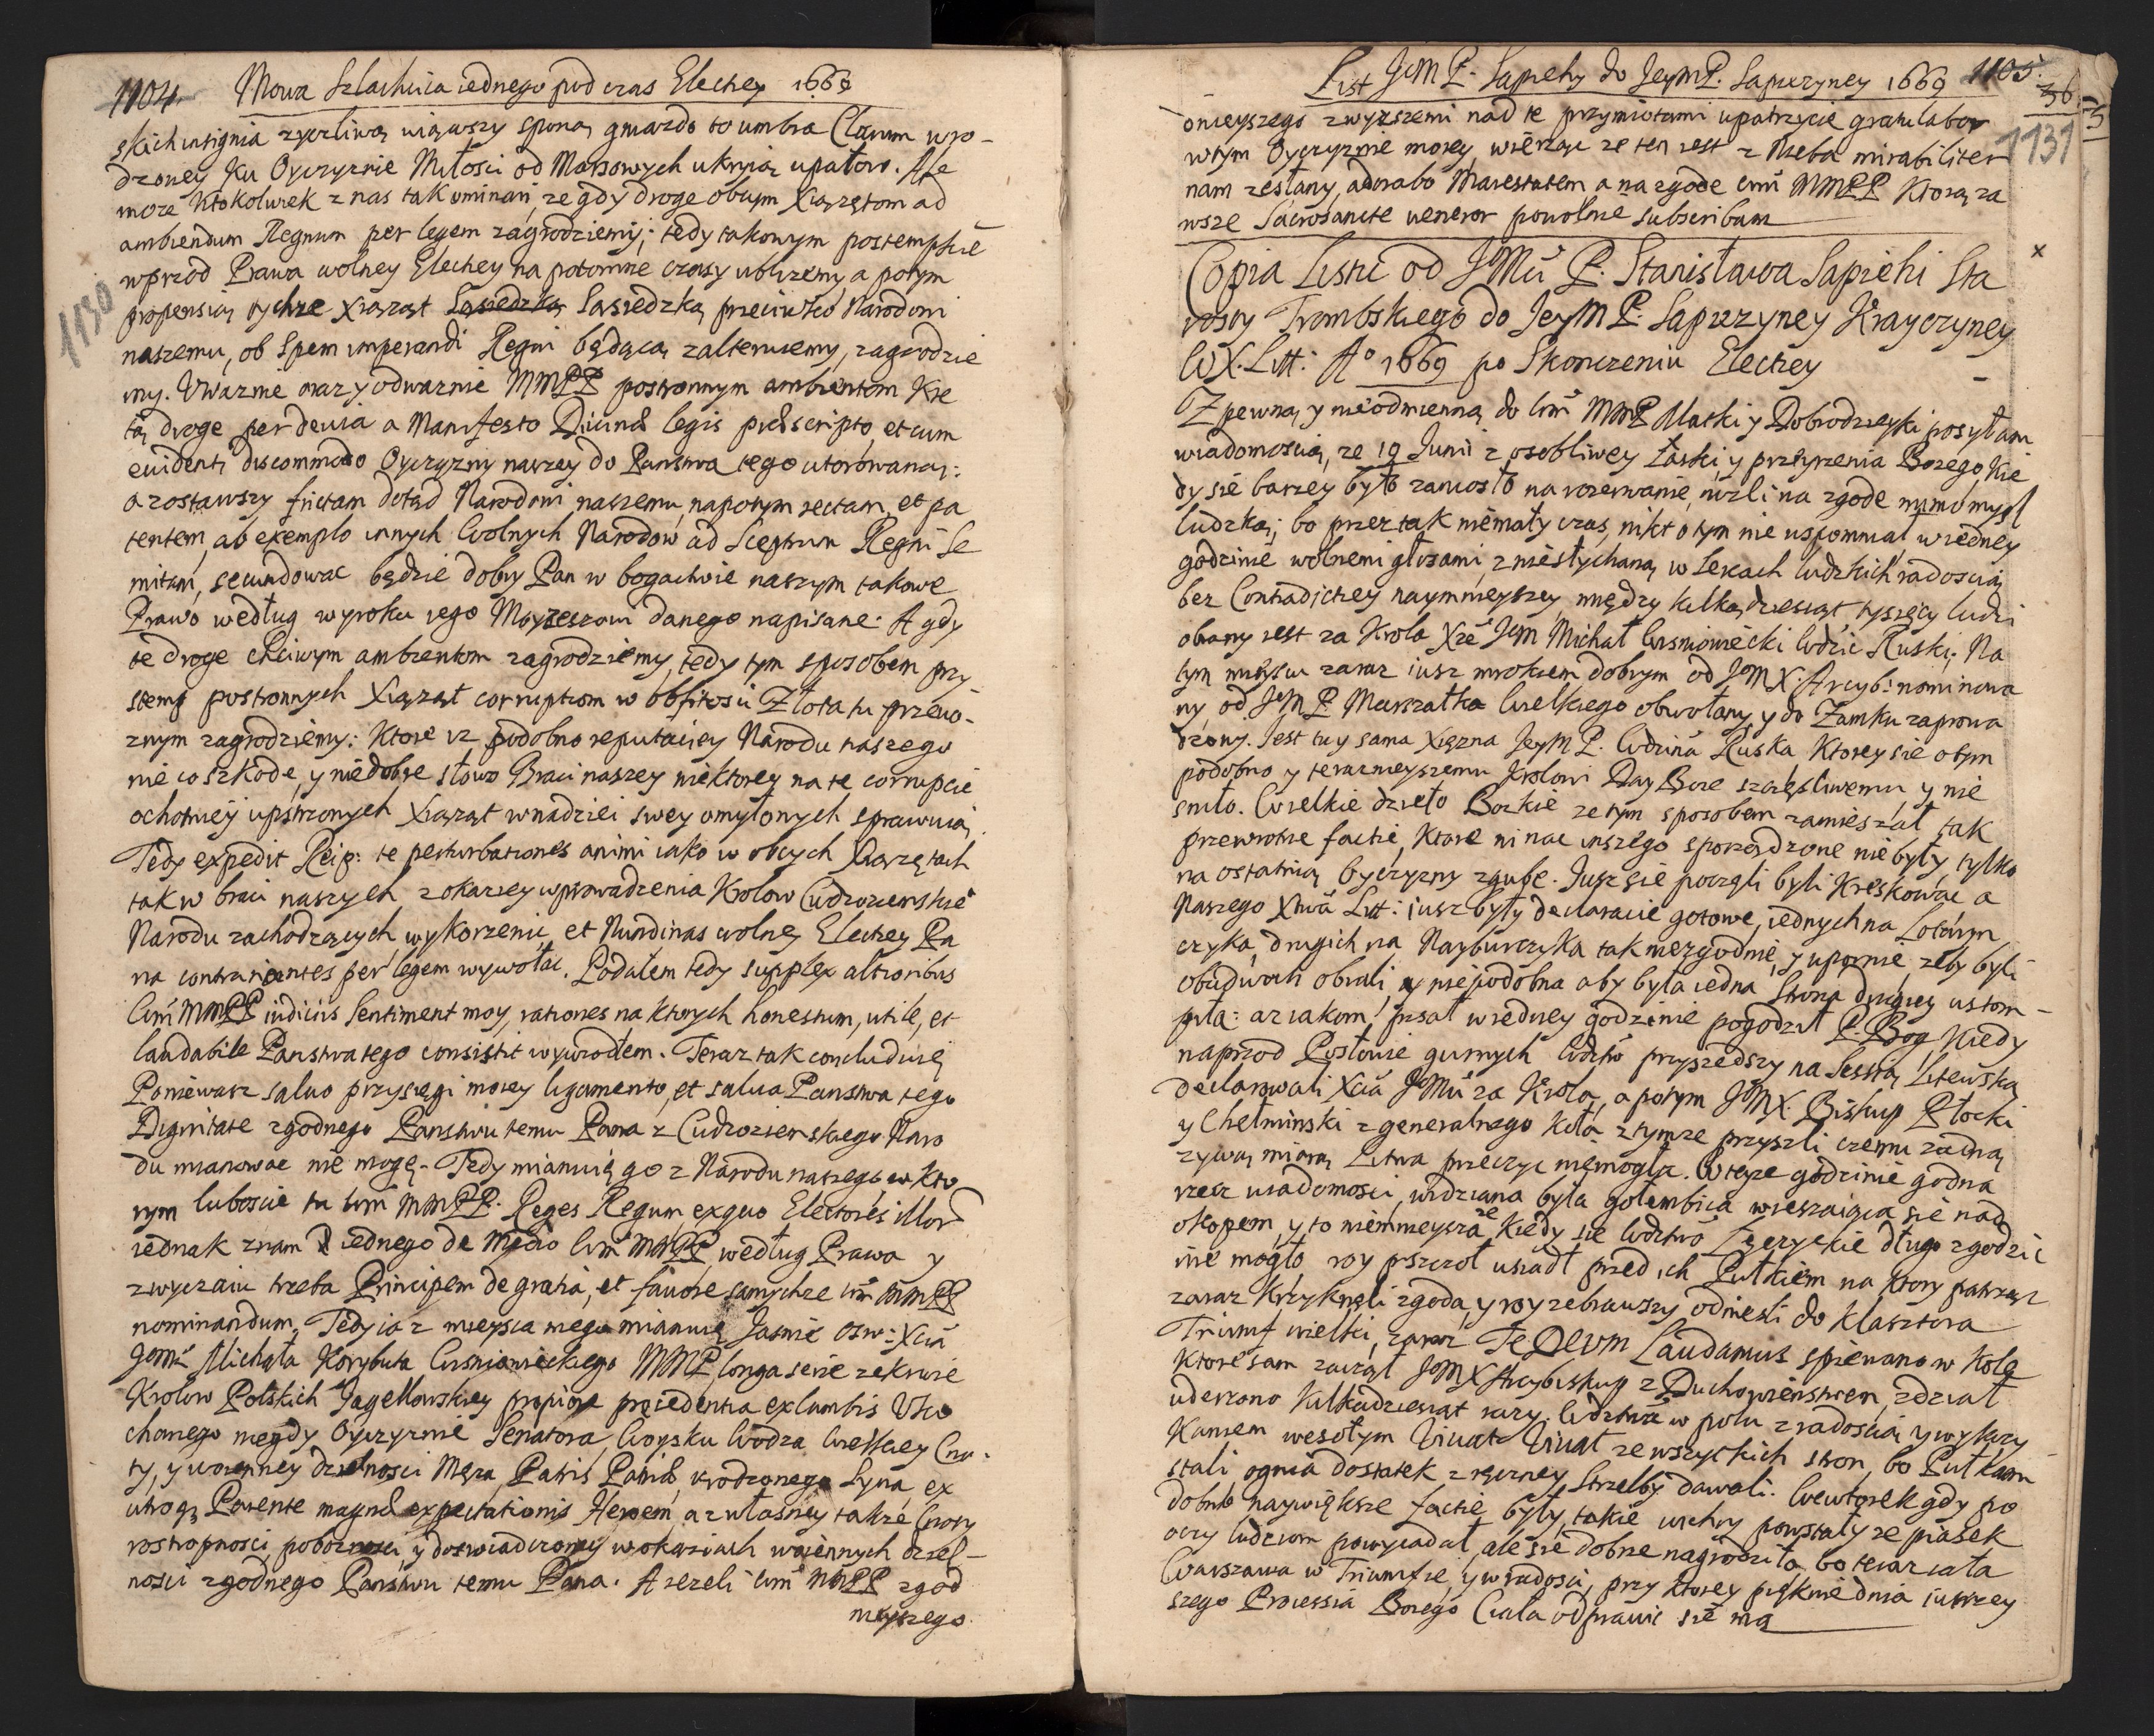 1104. Mowa Szlachcica iednego pod czas Electiey 1669
skich insignia zyczliwą wiąwszy sponą gniazdo to umbra Clarum wro-
dzoney Ku Oyczyznie Miłosci od Marsowych ukryią upałow. Ale
moze Ktokolwiek z nas tak ominari, ze gdy droge obcym Xiązętom ad
ambiendum Regnum per legem zagrodziemy; tedy takowym postempkiē
wprzod Prawa wolney Elechey na potomne czasy ubliżemy, a potym
propensią tychze Xiąząt Sąsiedzką Sąsiedzką przeciwko Narodowi
1130
naszemu, ob Spem imperandi Regni będącą zalterujemy, zagrodzie
my. Uwaznie oraz y odwaznie MMPP postronnym ambientom Kre
tą droge per deuia a Manifesto Diuinæ legis præscripto, et cum
euidenti discommodo Oyczyzny naszey do Panstwa tego utorowaną:
a zostawszy frictam dotąd Narodowi naszemu, napotym rectam, et pa
tentem, ab exemplo innych Wolnych Narodow ad Sceptrum Regni Se
mitam, secundowac będzie dobry Pan w bogactwie naszym takowe
Prawo według wyroku iego Moyzeszowi danego napisane: A gdy
te droge chciwym ambientom zagrodziemy, tedy tym sposobem przy-
stemp postronnych Xiąząt corruptiom w obfitosci Złota tu przewo-
znym zagrodziemy: Ktore iz podobno reputaciey Narodu naszego
nieco szkode, y niedobre słowo Braci naszey niektorey na te corrupcie
ochotniey upstrzonych Xiąząt w nadziei swey omylonych sprawuią.
Tedy expedit Reip: te perturbationes animi iako w obcych Xiązętach
tak w braci naszych z okazyey wprowadzenia Krolow Cudzoziemskiē
Narodu zachodzących wykorzenic, et Nundinas wolney Elechey Pa
na contrarientes per legem wywołac. Podałem tedy supplex altioribus
Wm MMPP iudiciis Sentiment moy, rationes na ktorych honestum, utile, et
laudabile Panstwa tego consistit wywiodłem. Teraz tak concluduię
Ponieważ saluo przysięgi moiey ligamento, et salua Panstwa tego
Dignitate zgodnego Panstwu temu Pana z Cudzoziemskiego Naro
du mianowac nie mogę. Tedy mianuię go z Narodu naszego, w Kto
rym luboscie tu Wm MMPP. Reges Regum, ex quo Electores illorū
iednak znam iednego de Medio Wm MMPP, według Prawa y
zwyczaiu trzeba Principem de gratia, et fauore samychze Wm MMPP
nominandum, Tedy ia z mieysca mego mianuię Jasnie Osw: Xcia
Jgomci Michała Korybuta Wisniowieckiego MMP longa serie ze krwie
Krolow Polskich Jagellowskiey propiore præcedentia ex lumbis Uko
chanego niegdy Oyczyznie Senatora, Woysku Wodza, Wielkiey Cno-
ty, y woienney dzielnosci Męza, Patris Patriæ, urodzonego Syna, ex
utroq Parente magnæ expectationis Heroem, a z własney takze Cnoty
rostropnosci, poboznosci y doswiadczoney w okaziach woiennych dziel-
nosci zgodnego Panstwu temu Pana. A iezeli Wm MMPP zgod
nieyszego
List JeM P. Sapiehy do JeymP. Sapiezyney 1669 1105.
36
1131
onieyszego z wyzszemi nad te przymiotami upatrzycie gratulabor
wtym Oyczyznie moiey, wierząc ze ten iest z Nieba mirabiliter
nam zesłany, adorabo Maiestatem a na zgode Wm MMPP Ktorą za
wsze Sacrosancte ueneror powolnie subscribam
Copia Listu od JeMci P. Stanisława Sapiehi Sta
rosty Trembskiego do JeyM P. Sapiezyney Krayczyney
W X. Litt: Ao 1669 po Skonczeniu Elechey
Z pewną y nieodmienną do Wm MMP Matki y Dobrodzieyki posyłam
wiadomoscią, ze 19 Junii z osobliwey Łaski y przeyrzenia Bozego, kie
dy sie barzey było zaniosło na rozerwanie, nizli na zgode mimo mysl
ludzką; bo przez tak niemały czas, nikt o tym nie uspomniał w iedney
godzinie wolnemi głosami, z niesłychaną w Sercach ludzkich radoscią
bez Contradictiey naymnieyszey między kilką dziesiąt tysięcy ludzi
obrany iest za Krola Xże JeM Michał Wisniowiecki Wodzic Ruski. Na
tym mieyscu zaraz iusz mrokiem dobrym od JeM X. Arcyb: nominowa
ny, od JeM P Marszałka Wielkiego obwołany y do Zamku zaprowa
dzony. Jest tu y sama Xięzna JeyM P. Wodzina Ruska, Ktorey sie o tym
podobno y terazmieyszemu Krolowi Day Boze szczęsliwemu, y nie
sniło. Wielkie dzieło Bozkie ze tym sposobem zamieszał tak
przewrotne factie, Ktore ni nac inszego sporządzone nie były, tylko
na ostatnią Oyczyzny zgube. Jusz sie poczęli byli Kreskowac a
Naszego Xtwa Litt: iusz były declaracie gotowe, iednych na Lotaryn
czyka, drugich na Nayburczyka tak niezgodnie, y upornie, zeby byli
obudwuch obrali, y niepodobna aby była iedna Strona drugiey ustom-
piła: az iakom pisał w iedney godzinie pogodził P. Bog, Kiedy
naprzod Posłowie gurnych Wdztw przyszedszy na Sessią Litewską
declarowali Xcia JeMci za Krola, a potym JeMX. Biskup Płocki
y Chełminski z generalnego koła z tymze przyszli czemu zadną
zywą miarą Litwa przeczyc niemogła. W teyze godzinie godna
rzecz wiadomosci, widziana była gołembica wieszaiąca sie nad
okopem, y to niemnieysza ze Kiedy sie Wdztwo Łęczyckie długo zgodzic
nie mogło roy pszczoł usiadł przed ich Pułkiem na ktory patrząc
zaraz krzyknęli zgoda, y roy zebrawszy odniesli do Klasztora
Triumf wielki, zaraz Te DEVM Laudamus spiewano w Kole
ktore sam zaczął JeM X Arcybiskup z Duchowienstwem, zdział
uderzono kilkadziesiąt razy. Wdztwa w polu z radoscią y wykrzy
kaniem wesołym Viuat Viuat ze wszystkich stron, bo Pułkami
stali ognia dostatek z ręczney Strzelby dawali. Wewtorek gdy po
dobno naywiększe factie były, takie wichry powstały ze piasek
oczy ludziom powyiadał, ale sie dobrze nagrodziło, bo teraz cała
Warszawa w Triumfie, y w radosci, przy ktorey pięknie dnia iutrzey
szego Processia Bozego Ciała odprawic sie ma